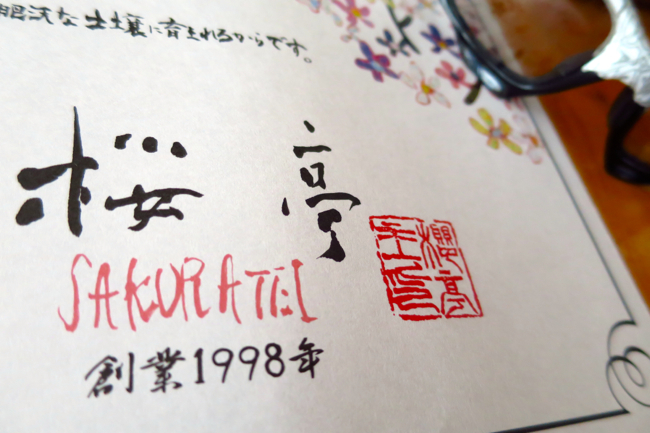 沢な土壌に育まれるからです。
桜亭
SAKURATEI
創業1998年